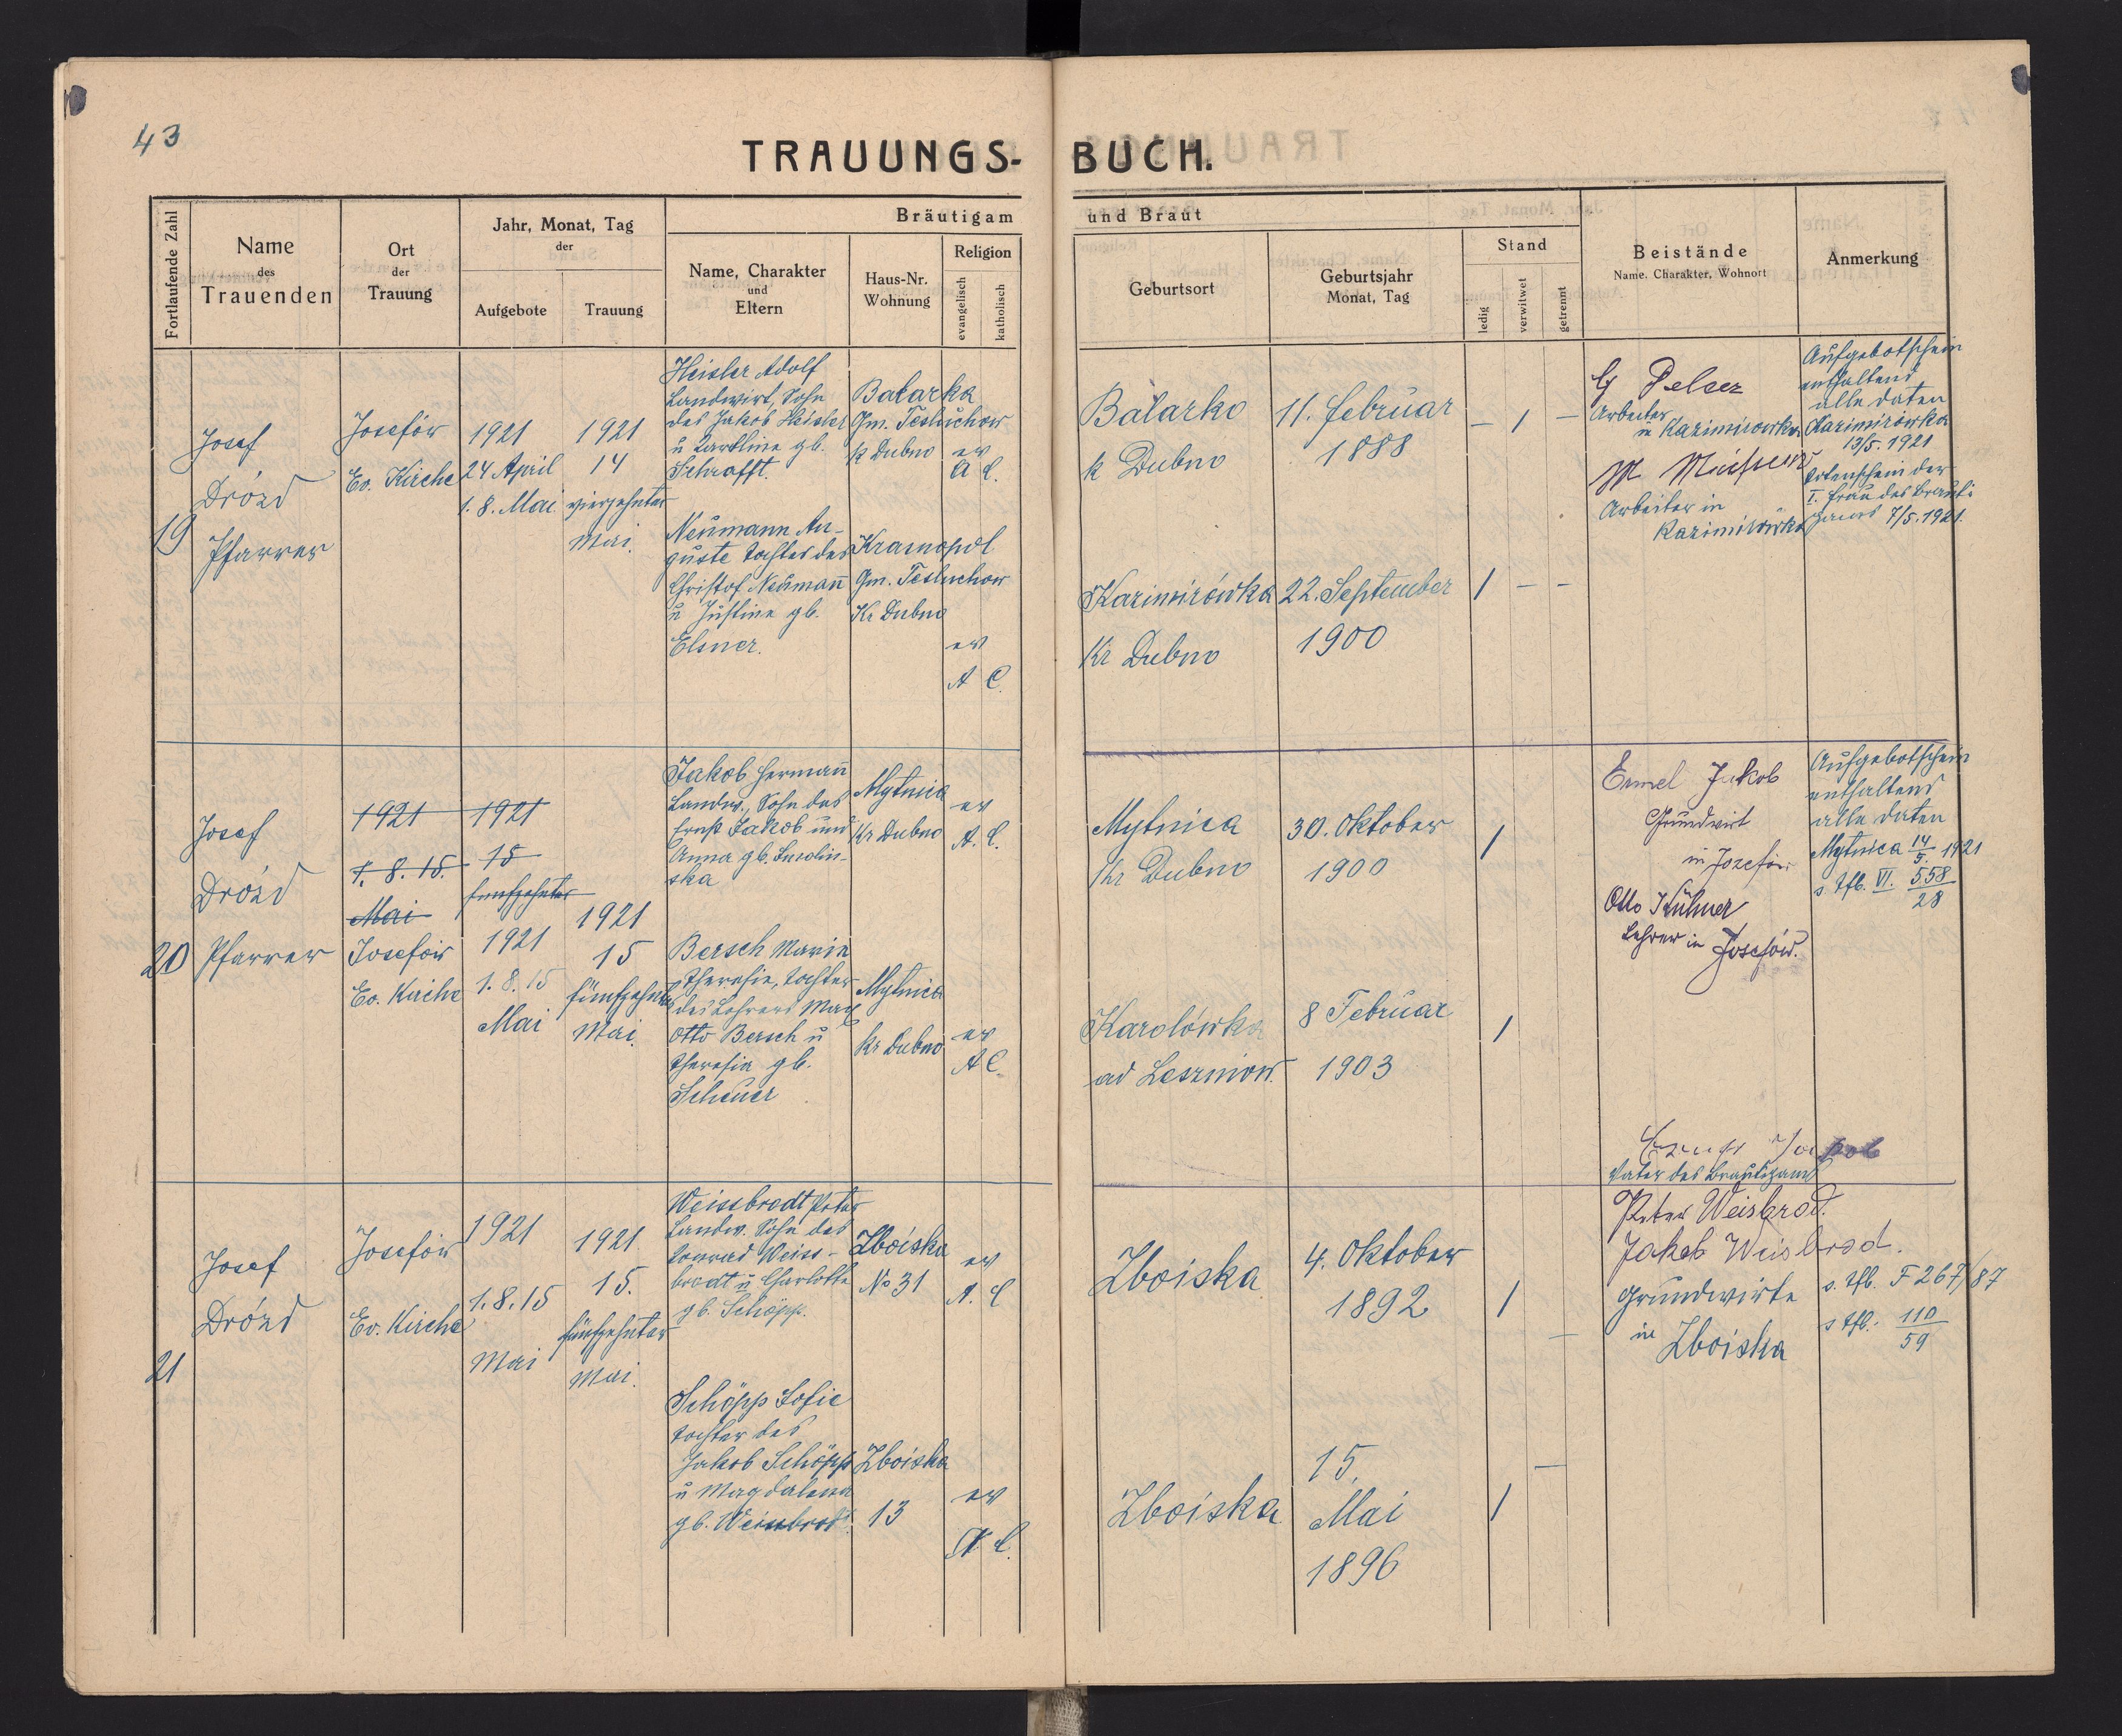 43
TRAUUNGS-BUCH.
Fortlaufende Zahl
Name
des
Trauenden
Ort
der
Trauung
Jahr, Monat, Tag
der
Aufgebote
Trauung
Bräutigam und Braut
Name, Charakter
und
Eltern
Haus-Nr.
Wohnung
Religion
evangelisch
katholisch
Geburtsort
Geburtsjahr
Monat, Tag
Stand
ledig
verwitwet
getrennt
Beistände
Name, Charakter, Wohnort
Anmerkung
19
Josef
Drózd
Pfarrer
Josefów
Ev. Kirche
1921
24 April
1. 8. Mai
1921
14
vierzehnter
Mai.
Heisler Adolf
Landwirt, Sohn
des Jakob Heisler
u Karoline gb.
Schrafft.
Batarka
Gm. Tesluchow
k Dubno
ev
A C.
Batarko
k Dubno
11. Februar
1888
– 1 –
G Pelzer
Arbeiter
in Kazimirowka
M
Arbeiter in
Kazimirówka
Aufgebotschein
enthaltend
alle Daten
Kazimirówka
13/5. 1921
Totenschein der
I. Frau des Bräuti
gams 7/5. 1921.
Neumann Au-
guste Tochter des
Christof Neumann
u Justine gb.
Elsner.
Krasnopol
Gm. Tesluchow
Kr Dubno
ev
A C.
Kazimirówka
Kr Dubno
22. September
1900
1 – –
20
Josef
Drózd
Pfarrer
1921
1. 8. 15.
Mai
Josefów
Ev. Kirche
1921
15
fünfzehnter
1921
1. 8. 15
Mai
1921
15
fünfzehnter
Mai.
Jakob Hermann
Landw., Sohn des
Ernst Jakob und
Anna gb. Smolin-
ska
Mytnica
Kr Dubno
ev
A. C.
Mytnica
Kr Dubno
30. Oktober
1900
1
Ermel Jakob
Grundwirt
in Josefów
Otto Kühner
Lehrer in Josefów.
Aufgebotschein
enthaltend
alle Daten
Mytnica 14/5. 1921
s. Tfb. VI. 558/28
Bersch Maria
Theresia, Tochter
des Lehrers Max
Otto Bersch u
Theresia gb.
Scheuer
Mytnica
Kr Dubno
ev
A C.
Karolówka
ad Leszniow.
8 Februar
1903
1
Ernst Jakob
Vater des Bräutigams
21
Josef
Drózd
Josefów
Ev. Kirche
1921
1. 8. 15
Mai
1921
15.
fünfzehnter
Mai.
Weissbrodt Peter
Landw. Sohn des
Konrad Weiss-
brodt u Charlotte
gb. Schöpp.
Zboiska
No 31
ev
A. C
Zboiska
4. Oktober
1892
1 –
Peter Weisbrod.
Jakob Weisbrod.
Grundwirte
in Zboiska
s. Tfb. F 267/87
s Tfb. 110/59
Schöpp Sofie
Tochter des
Jakob Schöpp
u Magdalena
gb. Weissbrodt.
Zboiska
13
ev
A C.
Zboiska
15.
Mai
1896
1 –